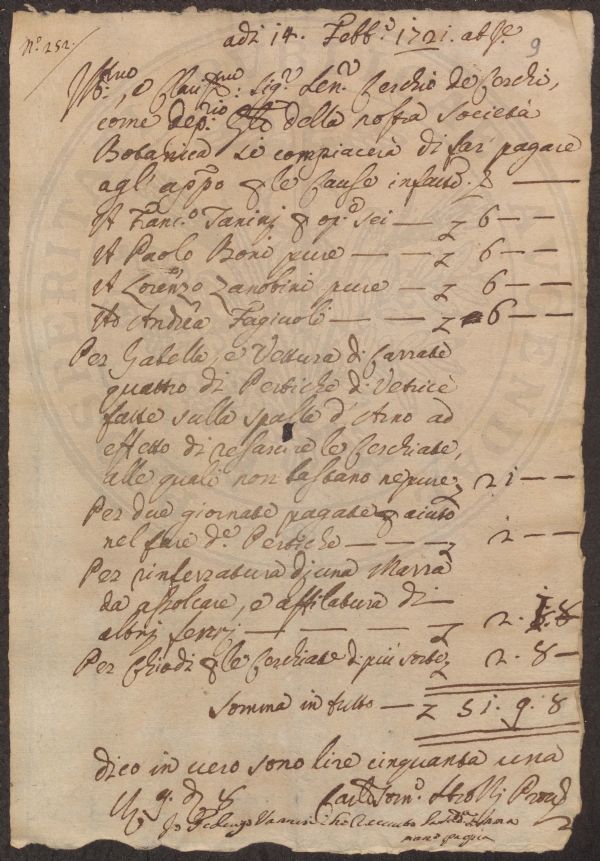 N.º 252.
adi 14. Febb.º 1721. ab Jn.e
9
Ill.mo, e Clariss.mo Sig.r Sen.r Cerchio de Cerchi,
come dep.rio della nostra Società
Botanica si compiacerà di far pagare
agl' app.o le cause infatte. £ —
A Franc.o Janini p op.e sei — £ 6 — —
A Paolo Boni pure — — £ 6 — —
A Lorenzo Zanobini pure — £ 6 — —
Ad Andrea Fagiuoli — — £ 6 — —
Per Gabella, e Vettura di Carrate
quattro di Pertiche di Vetrice
fatte sulla spalla d'Arno ad
effetto di resarcire le Cerchiate,
alle quali non bastano nepure £ 21 — —
Per due giornate pagate p aiuto
nel fare d.e Pertiche — — — £ 2 — —
Per rinferratura d'una Marra
da assolcare, e affilatura di
altri ferri — — — — £ 2. 1. 8
Per Chiodi p le Cerchiate di più sorte £ 2. 8 —
Somma in tutto — £ 51. 9. 8
dico in vero sono lire cinquanta una
9. d 8
mano propria